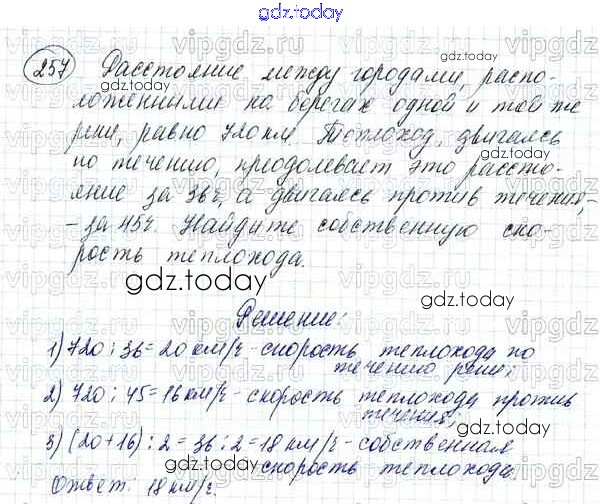 gdz.today
257 Расстояние между городами, распо-
ложенными на берегах одной и той же
реки, равно 720 км. Теплоход, двигаясь
по течению, преодолевает это расстоя-
ние за 36ч, а двигаясь против течения,-
-за 45ч. Найдите собственную ско-
рость теплохода.
gdz.today
Решение:
1) 720 : 36 = 20 км/ч - скорость теплохода по
течению реки;
2) 720 : 45 = 16 км/ч - скорость теплохода против
течения;
3) (20+16) : 2 = 36 : 2 = 18 км/ч - собственная
скорость теплохода.
Ответ: 18 км/ч.